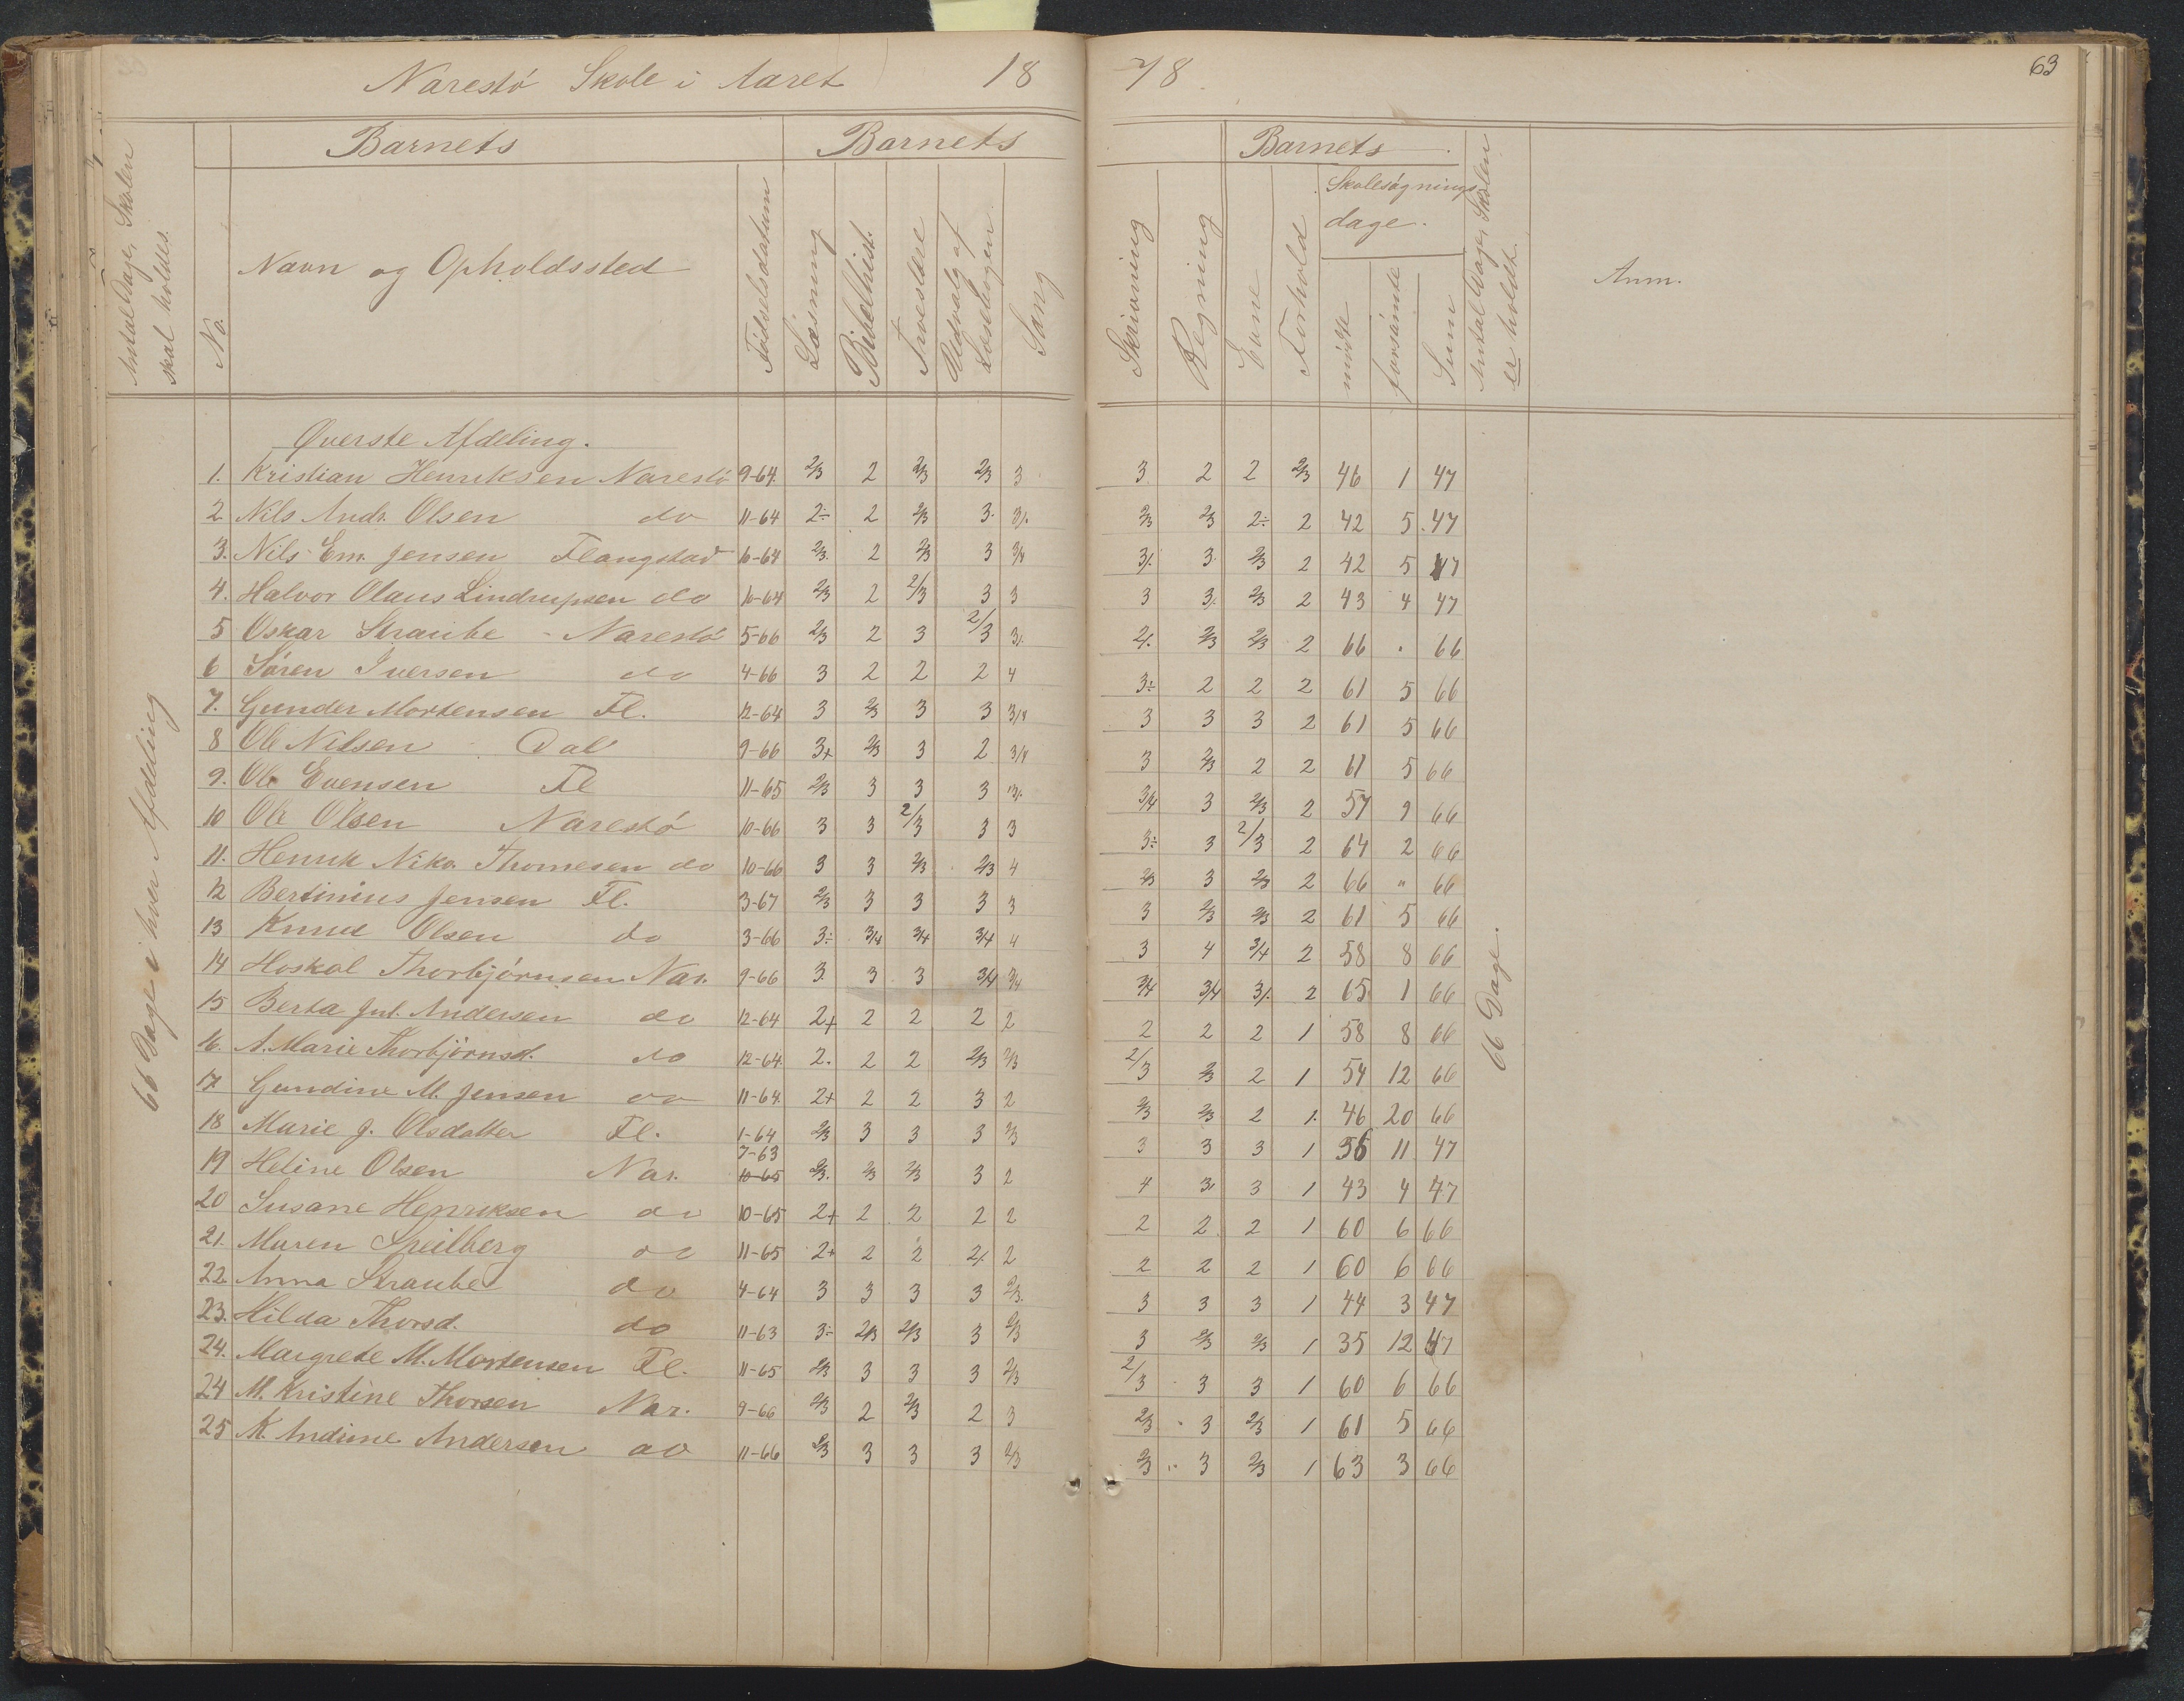 Narestø Skole i Aaret 1878
63
Antal Dage, Skolen skal holdes.
No.
Barnets
Navn og Opholdssted
Fødselsdatum
Barnets
Læsning
Bibelhist.
Troeslære
Udvalg af Læsebogen
Sang
Skrivning
Regning
Barnets
Evne
Forhold
Skolesøgningsdage.
mødte
forsømte
Sum
Antal Dage, Skolen er holdt
Anm.
66 Dage i hver Afdeling
66 Dage.
Øverste Afdeling.
1. Kristian Henriksen Narestø 9-64 2/3 2 2/3 2/3 3 3 2 2 2/3 46 1 47
2 Nils Andr. Olsen do 11-64 2÷ 2 2/3 3 3/. 2/3 2/3 2÷ 2 42 5 47
3. Nils Em. Jensen Flangstad 10-64 2/3 2 2/3 3 3/4 3/. 3 2/3 2 42 5 47
4. Halvor Olaus Lindrupsen do 10-64 2/3 2 2/3 3 3 3 3/. 2/3 2 43 4 47
5 Oskar Straube - Narestø 5-66 2/3 2 3 2/3 3/. 2/. 2/3 2/3 2 66 " 66
6 Søren Iversen do 4-66 3 2 2 2 4 3÷ 2 2 2 61 5 66
7. Gunder Mortensen Fl. 12-64 3 2/3 3 3 3/4 3 3 3 2 61 5 66
8 Ole Nilsen Dal 9-66 3+ 2/3 3 2 3/4 3 2/3 2 2 61 5 66
9. Ole Evensen Fl 11-65 2/3 3 3 3 3/. 3/4 3 2/3 2 57 9 66
10 Ole Olsen Narestø 10-66 3 3 2/3 3 3 3÷ 3 2/3 2 64 2 66
11. Henrik Niko. Thomesen do 10-66 3 3 2/3 2/3 4 2/3 3 2/3 2 66 " 66
12 Bertinius Jensen Fl. 3-67 2/3 3 3 3 3 3 2/3 2/3 2 61 5 66
13 Knud Olsen do 3-66 3÷ 3/4 3/4 3/4 4 3 4 3/4 2 58 8 66
14 Hoskol Thorbjørnsen Nar. 9-66 3 3 3 3/4 3/4 3/4 3/4 3/. 2 65 1 66
15 Berta Jul. Andersen do 12-64 2+ 2 2 2 2 2 2 2 1 58 8 66
16. A. Marie Thorbjørnsd. do 12-64 2. 2 2 2/3 2/3 2/3 2/3 2 1 54 12 66
17. Gundine M. Jensen do 11-64 2+ 2 2 3 2 2/3 2/3 2 1. 46 20 66
18 Marie J. Olsdatter Fl. 1-64 2/3 3 3 3 2/3 3 3 3 1 36 11 47
19 Heline Olsen Nar. 7-63 10-65 2/3. 2/3 2/3 3 2 4 3/ 3 1 43 4 47
20 Susane Henriksen do 10-65 2+ 2 2 2 2 2 2 2 1 60 6 66
21. Maren Speilberg do 11-65 2+ 2 2 2/. 2 2 2 2 1 60 6 66
22 Anna Straube do 4-64 3 3 3 3 2/3. 3 3 3 1 44 3 47
23. Hilda Thorsd. do 11-63 3÷ 2/3 2/3 3 2/3 3 2/3 2/3 1 35 12 47
24. Margrete M. Mortensen Fl. 11-65 2/3 3 3 3 2/3 2/3 3 3 1 60 6 66
24 M. Kristine Thorsen Nar. 9-66 2/3 2 2/3 2 3 2/3 3 2/3 1 61 5 66
25 K. Andrine Andersen do 11-66 2/3 3 3 3 2/3 2/3 3 2/3 1 63 3 66